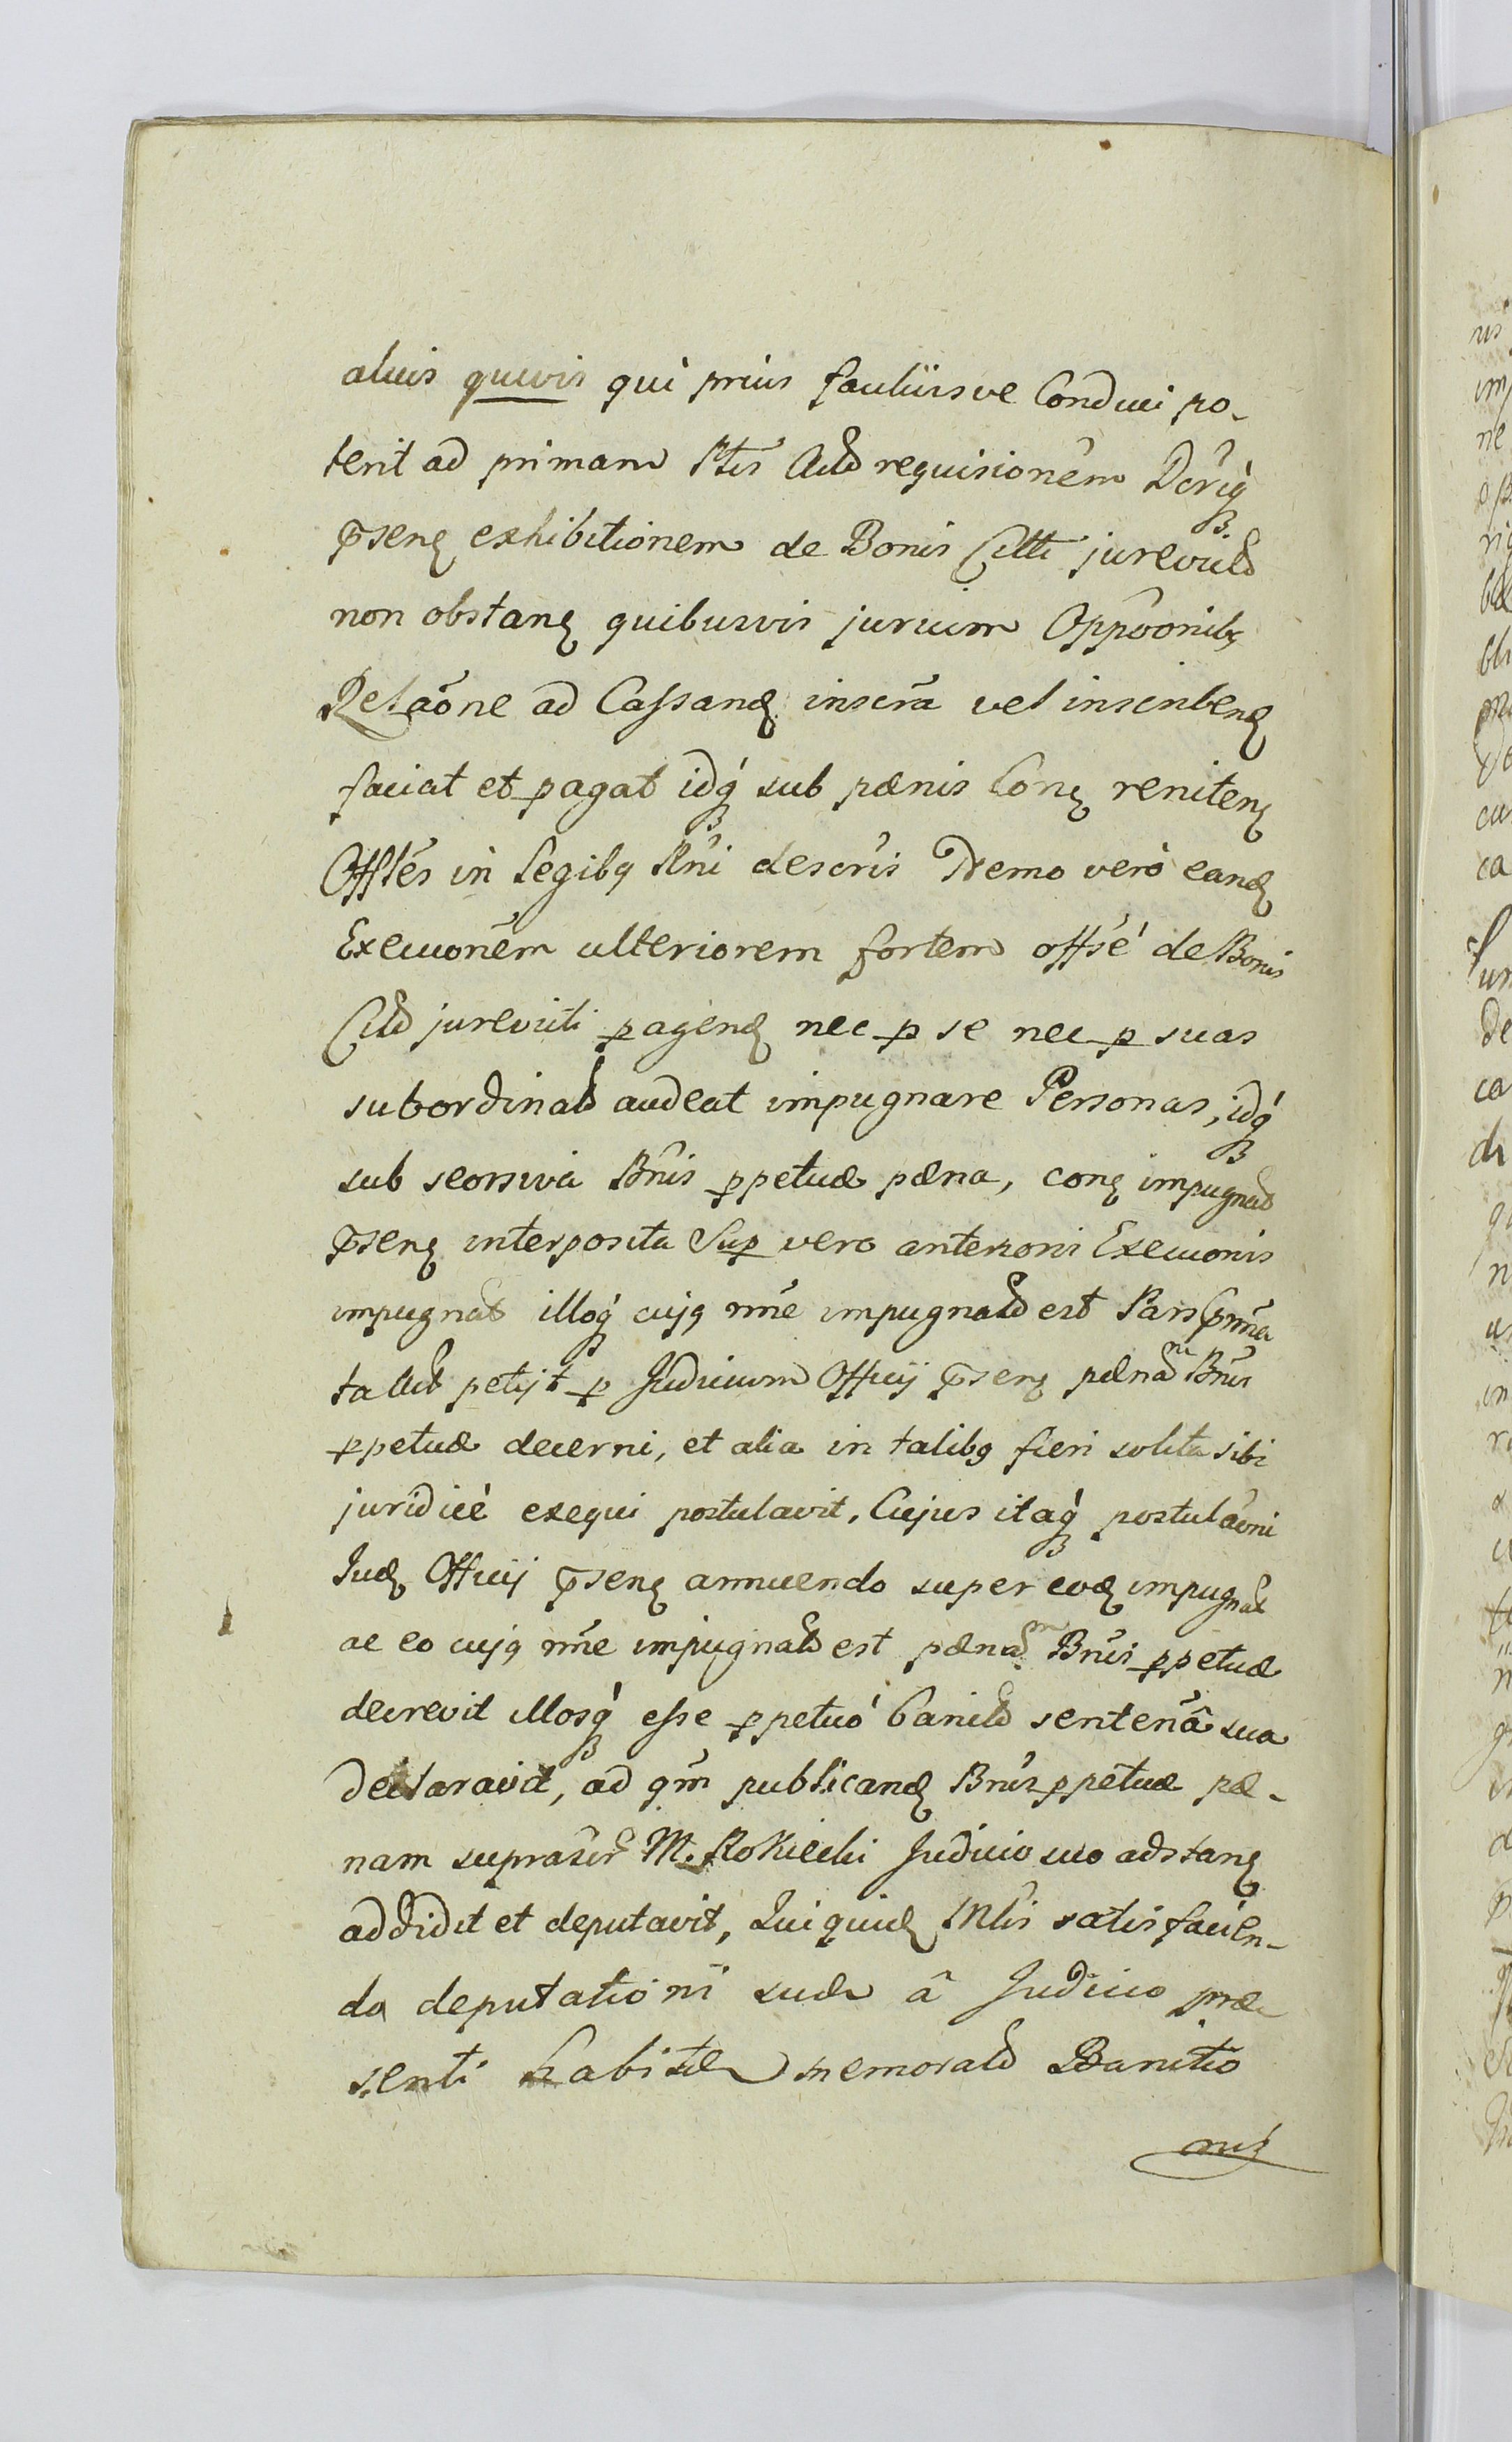 alius quivis qui prius faciliusve Conduci po-
terit ad primam Ptis Act requisionem Dcriq́
p̄senꝫ exhibitionem de Bonis Citti jurevict
non obstanꝫ quibusvis jurium Oppoonibꝫ
Relaōne ad Cassandꝫ inscrā vel inscribenꝫ
faciat et ꝑagat idq́ sub pænis Conꝫ renitenꝫ
Offles in Legibꝫ Rni descris Nemo verò eandꝫ
Execuonem ulteriorem fortem offsé de Bonis
Citt jurevicti ꝑagendꝫ nec ꝑ se nec ꝑ suas
subordinat audeat impugnare Personas, idq́
sub seorsiva Bnis ꝑpetuæ pæna, conꝫ impugnat
p̄senꝫ interposita Suꝑ vero anterioris Execuonis
impugnat illoq́ cujꝫ nne impugnat est Pars
ta Act petijt ꝑ Judicium Officij p̄senꝫ pænam Bnis
ꝑpetuæ decerni, et alia in talibꝫ fieri solita sibi
juridicé exequi postulavit. Cujus itaq́ postulaoni
Judꝫ Officij p̄senꝫ annuendo super eodꝫ impugnat
ac eo cujꝫ nne impugnat est pænam Bnis ꝑpetuæ
decrevit illosq́ esse ꝑpetuó banit sentenâ sua
declaravit, ad qm publicandꝫ Bnis ꝑpetuæ pæ-
nam suprascr M. Rokicki Judicio suo adstanꝫ
addidit et deputavit, Qui quidꝫ Mlis satisfacien-
do deputationi suæ â Judicio præ
senti habitæ memorat Banitio
nis